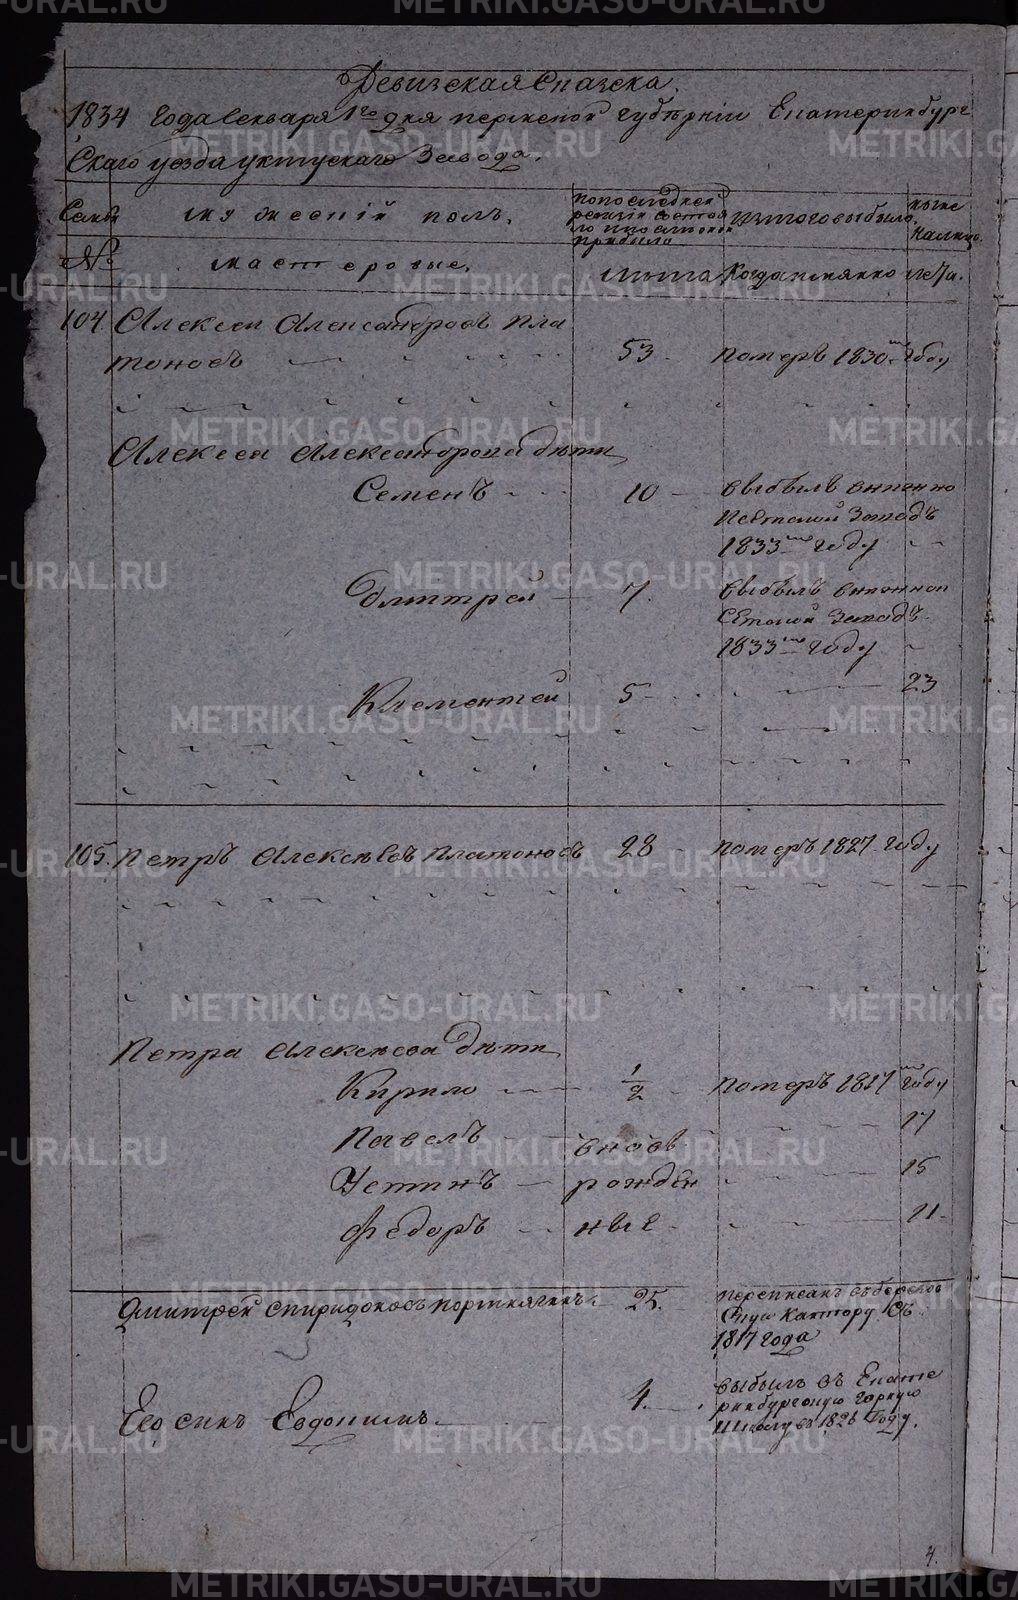 Ревизская Сказска.
1834 Года Генваря 1го дня пермской губѣрнiи Екатеринбург
Скаго уезда уктускаго Завода.
Семьи
мужескiй полъ.
попоследней
ревизiи состоя
ло ипослѣтого
прибыло
Изтого выбыло.
ныне
Налицо.
№
мастеровые.
лѣта
Когда имянно
лета.
104
Алексеи Александровъ Пла
тоновъ
53
померъ 1830го Году
Алексея Александрова дѣти
Семенъ
10
выбылъ
Завод
1833го году
Дмитрей
7.
выбылъ
Завод
1833го году
Клементей
5
23
105.
Петръ Алексѣевъ Платоновъ
28
померъ 1827 году
Петра Алексѣева дѣти
Кирило
1/2
померъ 1817го Году
Павелъ
вновь
17
Устинъ
рожден
15
Федоръ
ные
11
Дмитрей Спиридоновъ портнягинъ
25.
переписанъ въберезов
Скую Кантору Съ
1817 года
Его сынъ Евдокимъ
4.
выбылъ въ Екате
ринбургскую горную
Школу въ 1826 Году.
4.
METRIKI.GASO-URAL.RU